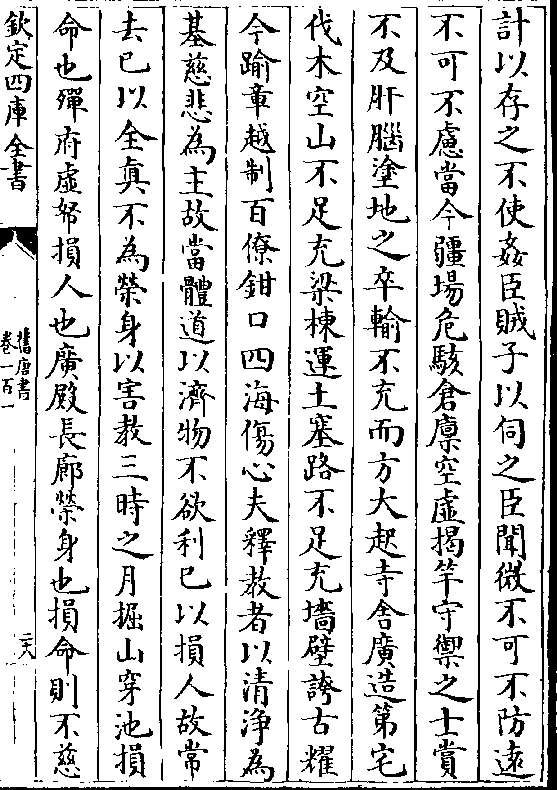 計以存之不使姦臣賊子以伺之臣聞微不可不防遠
不可不慮當今疆場危駭倉廪空虛揭竿守禦之士賞
不及肝腦塗地之卒輸不充而方大起寺舍廣造第宅
伐木空山不足充梁棟運土塞路不足充墻壁誇古耀
今踰章越制百僚鉗口四海傷心夫釋教者以清淨為
基慈悲為主故當體道以濟物不欲利已以損人故常
去已以全真不為榮身以害教三時之月掘山穿池損
命也殫府虛帑損人也廣殿長廊榮身也損命則不慈
欽定四庫全書
舊唐書
卷一百一
二六